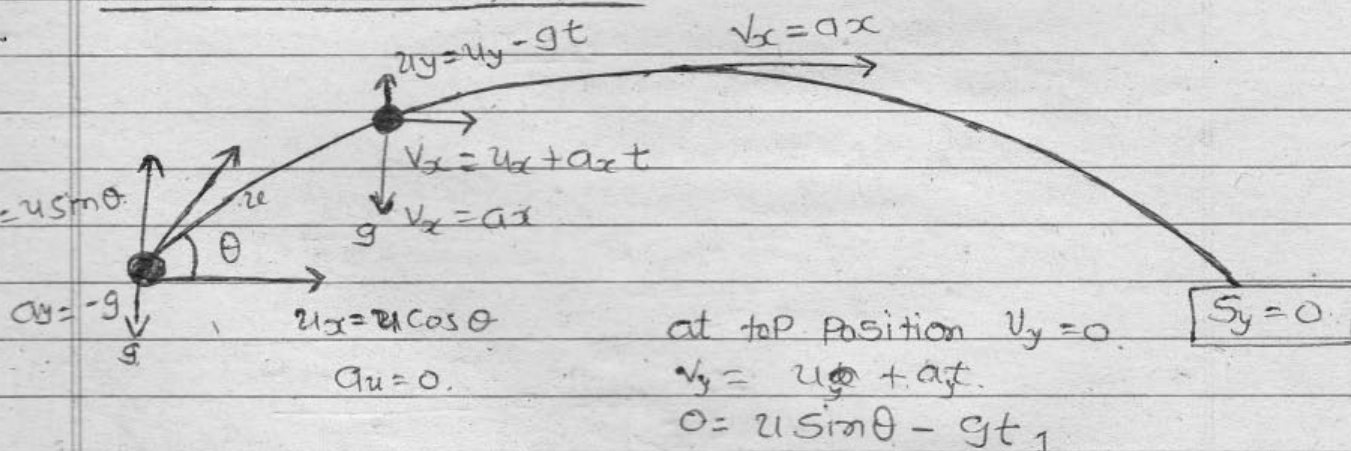 uy=uy-gt
Vx=ax
Vx=ux+axt
=usinθ
u
g Vx=ax
θ
ay=-g
g
ux=ucosθ
au=0.
at top Position Vy=0
Sy=0
Vy= uy +ayt.
0= uSinθ - gt1